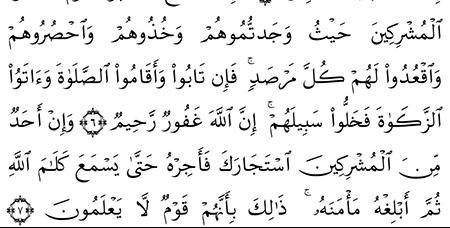 ٱلْمُشْرِكِينَ حَيْثُ وَجَدتُّمُوهُمْ وَخُذُوهُمْ وَٱحْصُرُوهُمْ
وَٱقْعُدُوا۟ لَهُمْ كُلَّ مَرْصَدٍۢ ۚ فَإِن تَابُوا۟ وَأَقَامُوا۟ ٱلصَّلَوٰةَ وَءَاتَوُا۟
ٱلزَّكَوٰةَ فَخَلُّوا۟ سَبِيلَهُمْ ۚ إِنَّ ٱللَّهَ غَفُورٌۭ رَّحِيمٌۭ ﴿٦﴾ وَإِنْ أَحَدٌۭ
مِّنَ ٱلْمُشْرِكِينَ ٱسْتَجَارَكَ فَأَجِرْهُ حَتَّىٰ يَسْمَعَ كَلَٰمَ ٱللَّهِ
ثُمَّ أَبْلِغْهُ مَأْمَنَهُۥ ۚ ذَٰلِكَ بِأَنَّهُمْ قَوْمٌۭ لَّا يَعْلَمُونَ ﴿٧﴾